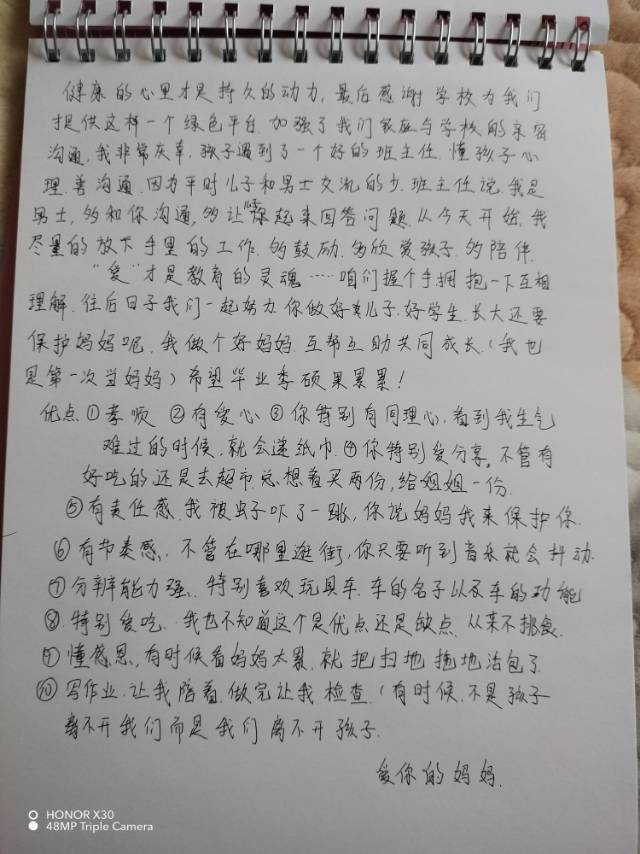 健康的心里才是持久的动力，最后感谢学校为我们
提供这样一个绿色平台.加强了我们家庭与学校的亲密
沟通,我非常庆幸,孩子遇到了一个好的班主任.懂孩子心
理.善沟通.因为平时儿子和男士交流的少.班主任说.我是
男士,多和你沟通,多让你起来回答问题.从今天开始,我
尽量的放下手里的工作.多鼓励.多欣赏孩子.多陪伴.
"爱"才是教育的灵魂……咱们握个手拥抱一下互相
理解.往后日子我们一起努力.你做好儿子.好学生.长大还要
保护妈妈呢.我做个好妈妈.互帮互助共同成长.(我也
是第一次当妈妈)希望毕业季硕果累累!
优点①孝顺 ②有爱心 ③你特别有同理心,看到我生气
难过的时候,就会递纸巾.④你特别爱分享,不管有
好吃的还是去超市总想着买两份,给姐姐一份.
⑤有责任感.我被虫子吓了一跳,你说妈妈我来保护你.
⑥有节奏感.不管在哪里逛街,你只要听到音乐就会抖动.
⑦分辨能力强.特别喜欢玩具车.车的名子以及车的功能
⑧.特别爱吃.我也不知道这个是优点还是缺点.从来不挑食.
⑨懂感恩,有时候看妈妈太累.就把扫地拖地活包了.
⑩写作业.让我陪着.做完让我检查.(有时候.不是孩子
离不开我们而是我们离不开孩子.
爱你的妈妈.
HONOR X30
48MP Triple Camera